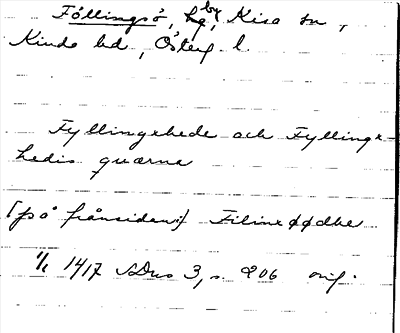 Föllingsö, by, Kisa sn,
Kinds hd, Österg l.
Fyllingxhede och Fyllingx-
hedis quarna
[på frånsidan:] Filinxødhe
1/1 1417 SDns 3, s. 206 orig.